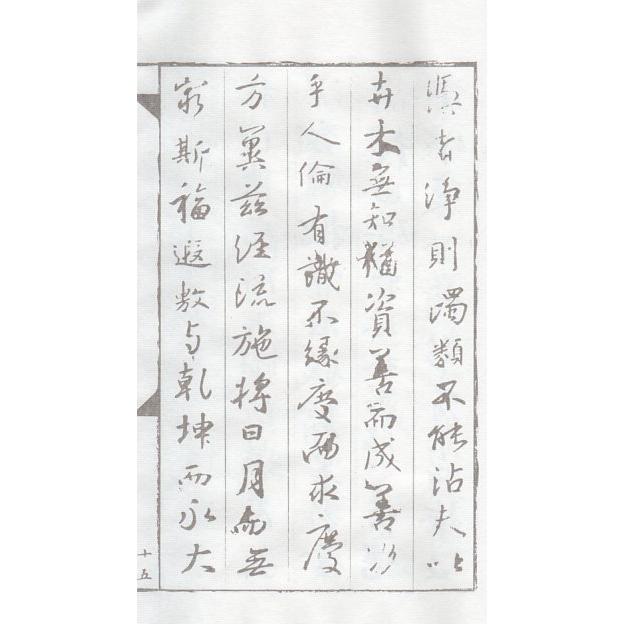 憑者淨則濁類不能沾夫以
卉木無知猶資善而成善況
乎人倫有識不緣慶而求慶
方冀茲經流施將日月而無
窮斯福遐敷與乾坤而永大
十五